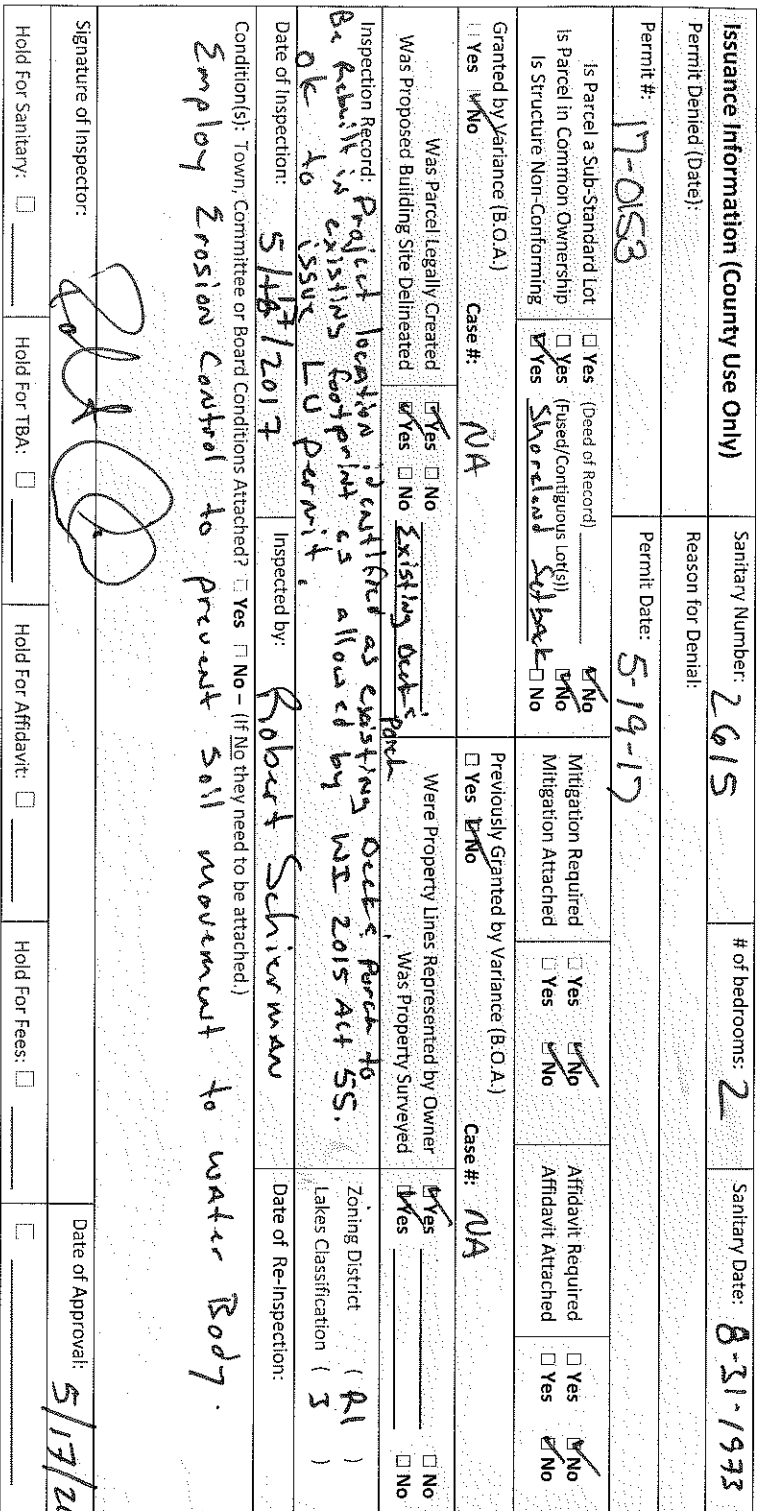 Issuance Information (County Use Only)
Sanitary Number: 2615
# of bedrooms: 2
Sanitary Date: 8-31-1973
Permit Denied (Date):
Reason for Denial:
Permit #: 17-0153
Permit Date: 5-19-17
Is Parcel a Sub-Standard Lot ☐ Yes (Deed of Record) ☑ No
Is Parcel in Common Ownership ☐ Yes (Fused/Contiguous Lot(s)) ☑ No
Is Structure Non-Conforming ☑ Yes Shoreland Setback ☐ No
Mitigation Required ☐ Yes ☑ No
Mitigation Attached ☐ Yes ☑ No
Affidavit Required ☐ Yes ☑ No
Affidavit Attached ☐ Yes ☑ No
Granted by Variance (B.O.A.)
☐ Yes ☑ No Case #: NA
Previously Granted by Variance (B.O.A.)
☐ Yes ☑ No Case #: NA
Was Parcel Legally Created ☑ Yes ☐ No
Was Proposed Building Site Delineated ☑ Yes ☐ No Existing Deck & Porch
Were Property Lines Represented by Owner ☑ Yes ☐ No
Was Property Surveyed ☑ Yes ☐ No
Inspection Record: Project location identified as existing Deck & Porch to
Be Rebuilt in existing footprint as allowed by WI 2015 Act 55.
ok to issue LU permit.
Zoning District ( R1 )
Lakes Classification ( 3 )
Date of Inspection: 5/17/2017
Inspected by: Robert Schierman
Date of Re-Inspection:
Condition(s): Town, Committee or Board Conditions Attached? ☐ Yes ☐ No – (If No they need to be attached.)
Employ Erosion Control to prevent soil movement to water Body.
Signature of Inspector:
Date of Approval: 5/17/20
Hold For Sanitary: ☐
Hold For TBA: ☐
Hold For Affidavit: ☐
Hold For Fees: ☐
☐